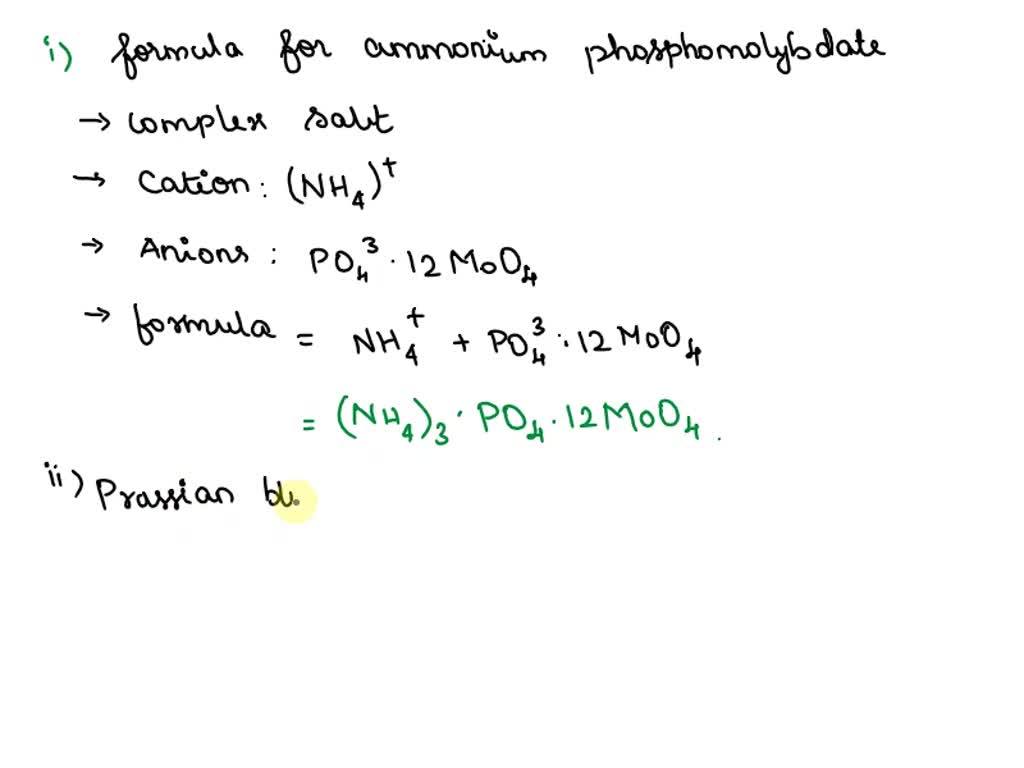 i) formula for ammonium phosphomolybdate
→ complex salt
→ Cation : (NH₄)⁺
→ Anions : PO₄³ · 12 MoO₄
→ formula = NH₄⁺ + PO₄³ · 12 MoO₄
= (NH₄)₃ · PO₄ · 12 MoO₄ .
ii) Prassian bl